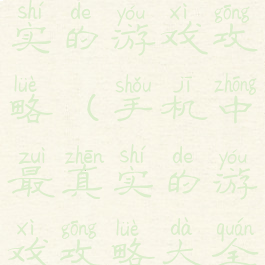 shí de yóu xì gōng
实的游戏攻
lüè shǒu jī zhōng
略（手机中
zuì zhēn shí de yóu
最真实的游
xì gōng lüè dà quán
戏攻略大全